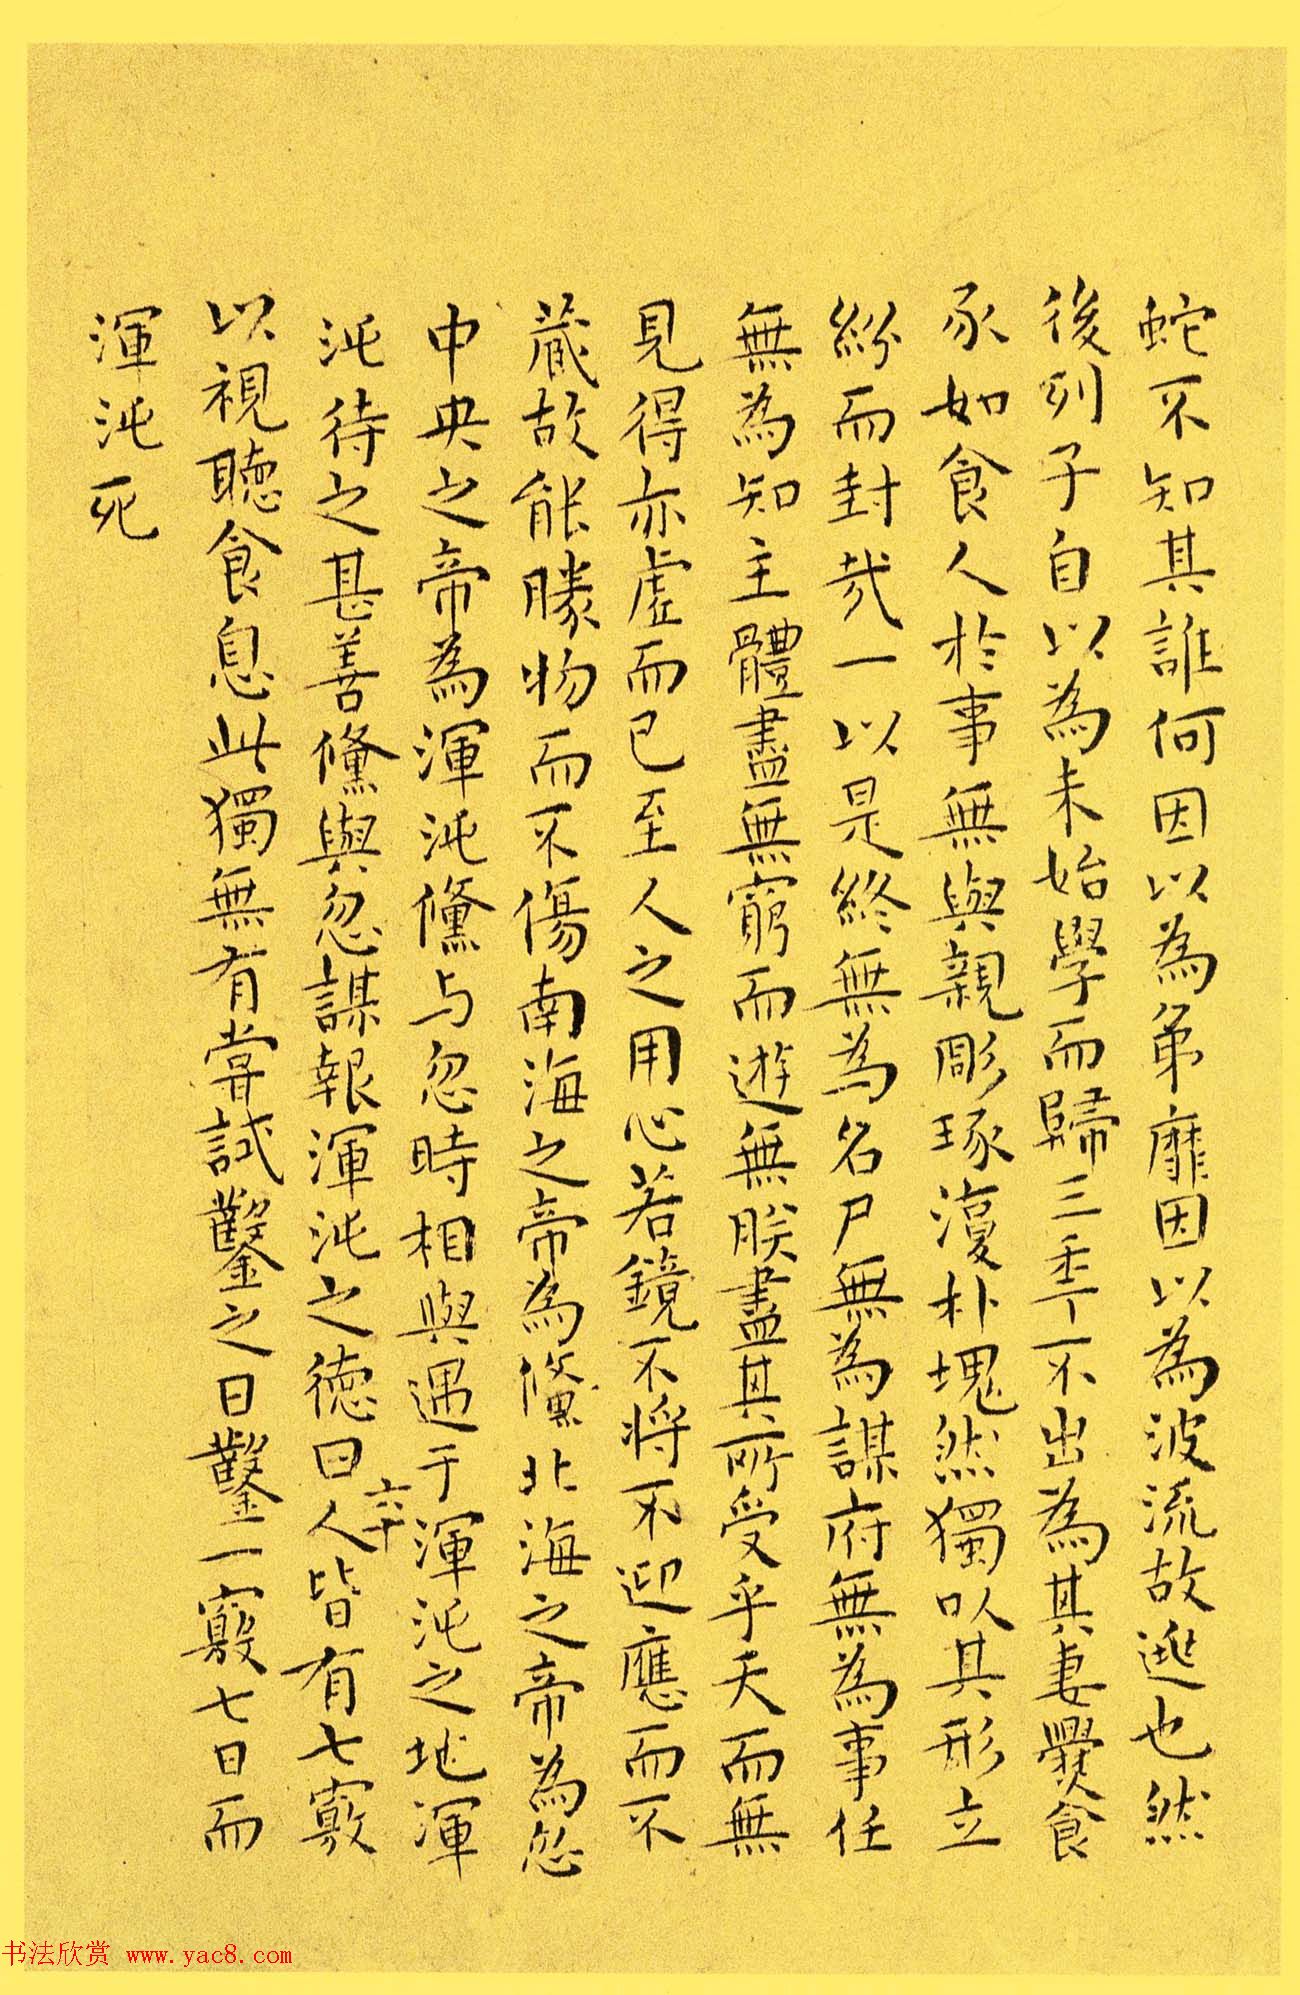 蛇不知其誰何因以為弟靡因以為波流故逃也然
後列子自以為未始學而歸三年不出為其妻爨食
豕如食人於事無與親彫琢復朴塊然獨以其形立
紛而封哉一以是終無為名尸無為謀府無為事任
無為知主體盡無窮而遊無朕盡其所受乎天而無
見得亦虛而已至人之用心若鏡不將不迎應而不
藏故能勝物而不傷南海之帝為儵北海之帝為忽
中央之帝為渾沌儵与忽時相與遇于渾沌之地渾
沌待之甚善儵與忽謀報渾沌之德曰人皆有七竅
以視聽食息此獨無有嘗試鑿之日鑿一竅七日而
渾沌死
书法欣赏 www.yac8.com